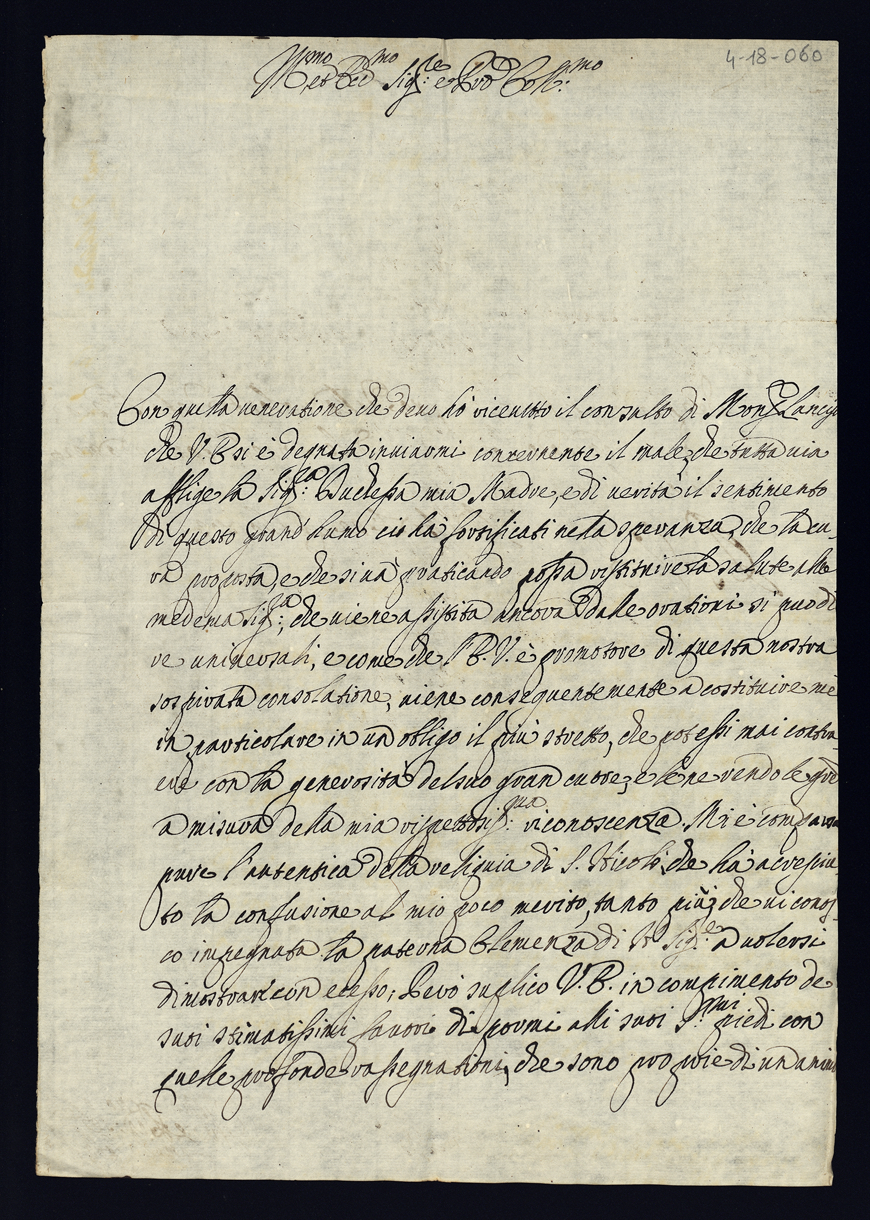 4-18-060
Ill.mo et Ecc.mo Sig.re e Pro.n Coll.mo
Con quella veneratione che devo hò riceuuto il consulto di Mons.r Lancisi
che V. E. si è degnata inviarmi concernente il male, che tutta via
afflige la Sig.ra Duchessa mia Madre, e di verità il sentimento
di questo grand' humo ci hà fortificati nella speranza, che la cu-
ra proposta, e che si và praticando possa ristituire la salute alla
medema Sig.ra, che viene assistita ancora dalle orationi si puo di-
re universali, e come che l' E. V. è promotore di questa nostra
sospirata consolatione, viene conseguentemente a costituire me
in particolare in un obligo il più stretto, che potessi mai contra-
ere con la generosità del suo gran cuore, e le ne rendo le gra
a misura della mia rispettosis.ma riconoscenza. Mi è comparsa
pure l'autentica della reliquia di S. Nicolò, che hà accresciu-
to la confusione al mio poco merito, tanto più, che ricono-
co impegnata la paterna Clemenza di N. Sig.re a volersi
dimostrar con ecesso; Però suplico V. E. in compimento de
suoi stimatissimi favori di pormi alli suoi S.mi piedi con
quelle profonde rassegnationi, che sono proprie di un anim